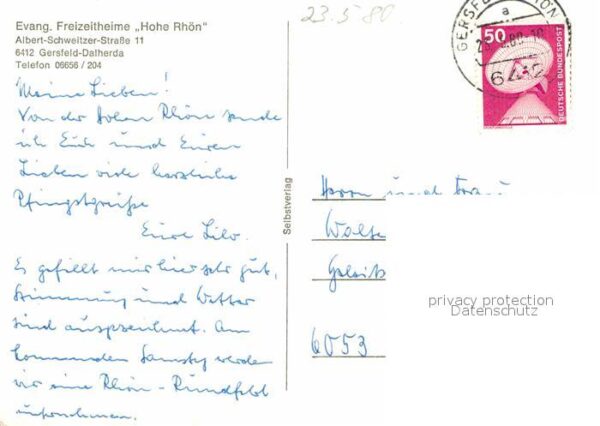 Evang. Freizeitheime „Hohe Rhön"
Albert-Schweitzer-Straße 11
6412 Gersfeld-Dalherda
Telefon 06656 / 204
23.5.80
Meine Lieben!
Von der Hohen Rhön sende
ich Euch und Euren
Lieben viele herzliche
Pfingstgrüße
Eure
Es gefällt mir hier sehr gut,
Stimmung und Wetter
sind ausgezeichnet. Am
kommenden Samstag werden
wir eine Rhön-Rundfahrt
unternehmen.
Selbstverlag
GERSFELD RHÖN
a
6412
50
DEUTSCHE BUNDESPOST
Herrn und Frau
6053
privacy protection
Datenschutz